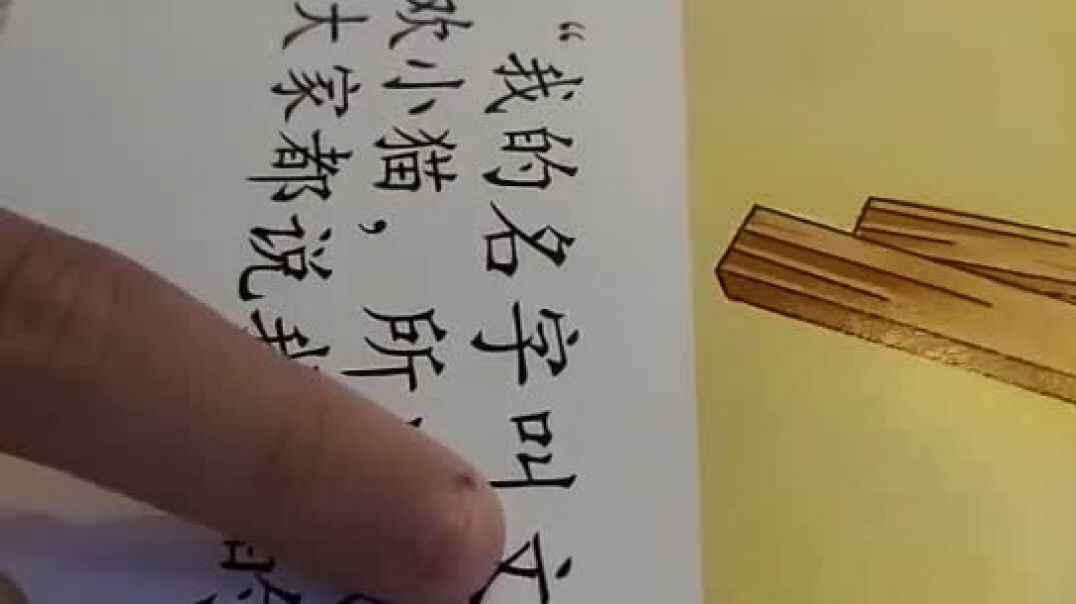 “我的名字叫
欢小猫，所
大家都说我